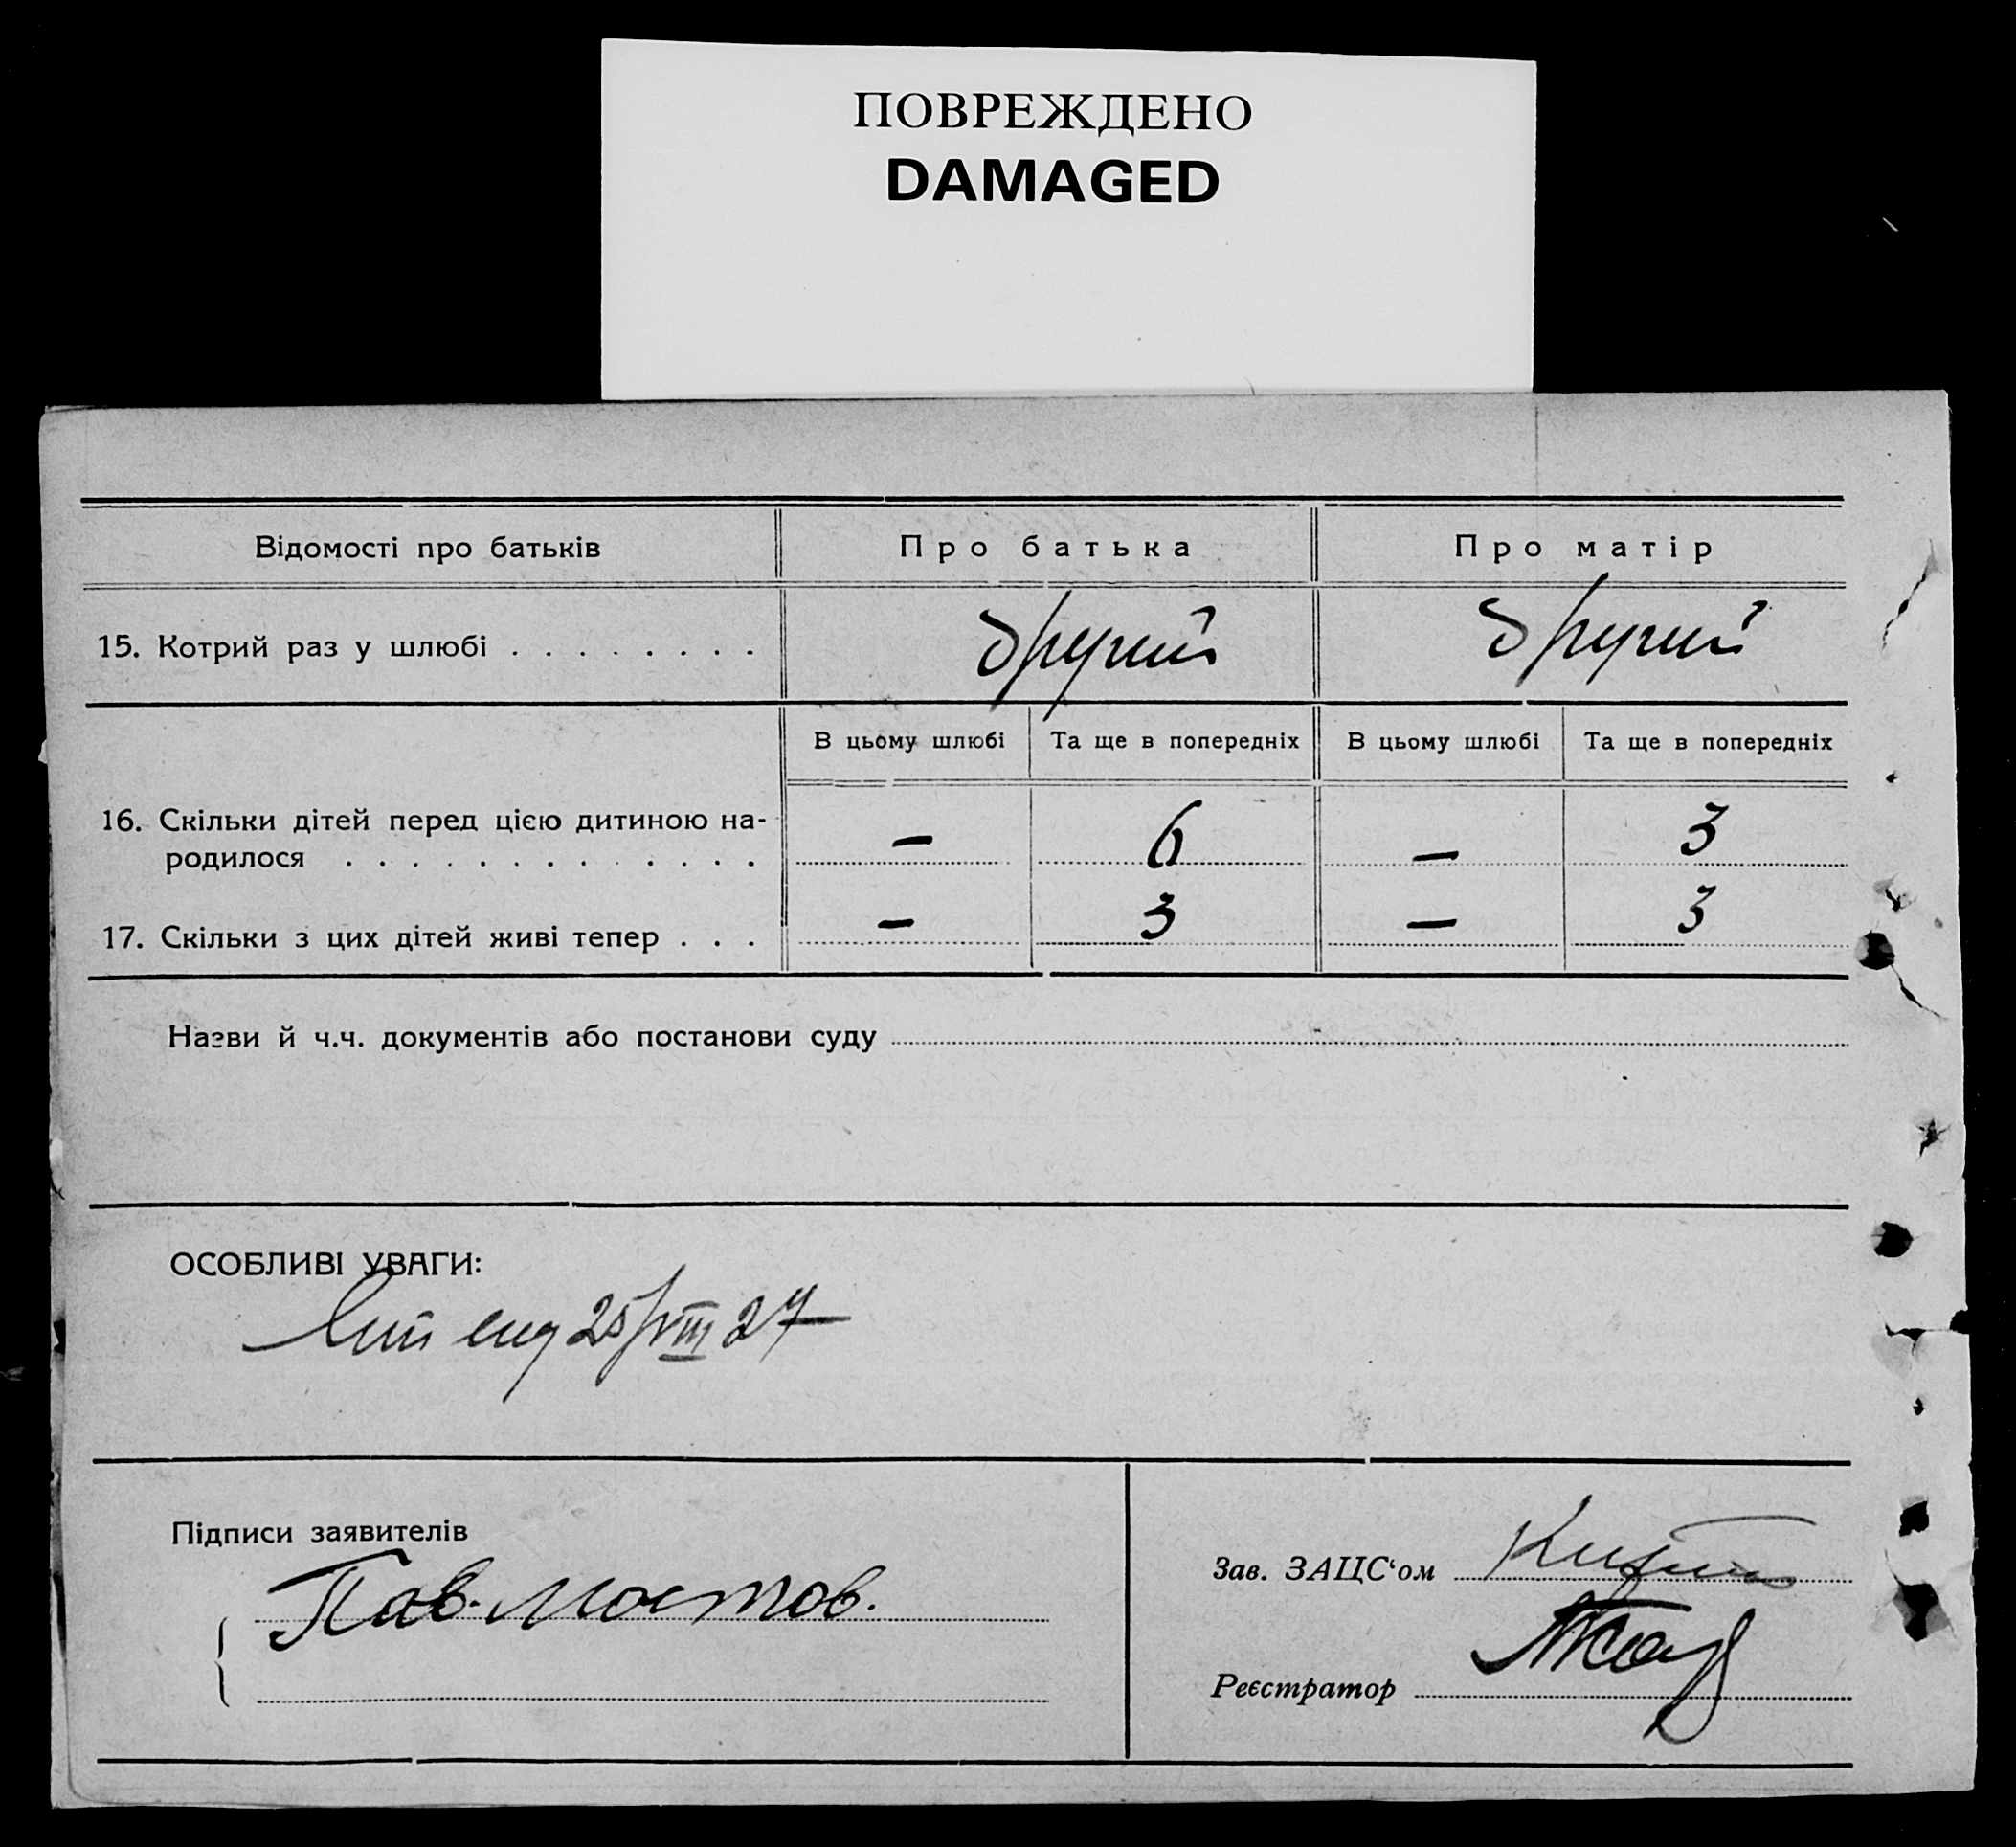 ПОВРЕЖДЕНО
DAMAGED
Відомості про батьків Про батька Про матір
15. Котрий раз у шлюбі . . . . . . . . другий другий
В цьому шлюбі Та ще в попередніх В цьому шлюбі Та ще в попередніх
16. Скільки дітей перед цією дитиною на-
родилося . . . . . . . . . . . . . — 6 — 3
17. Скільки з цих дітей живі тепер . . . — 3 — 3
Назви й ч.ч. документів або постанови суду
ОСОБЛИВІ УВАГИ:
25/VIII 27
Підписи заявителів
Пав. Мостов.
Зав. ЗАЦС‘ом
Реєстратор